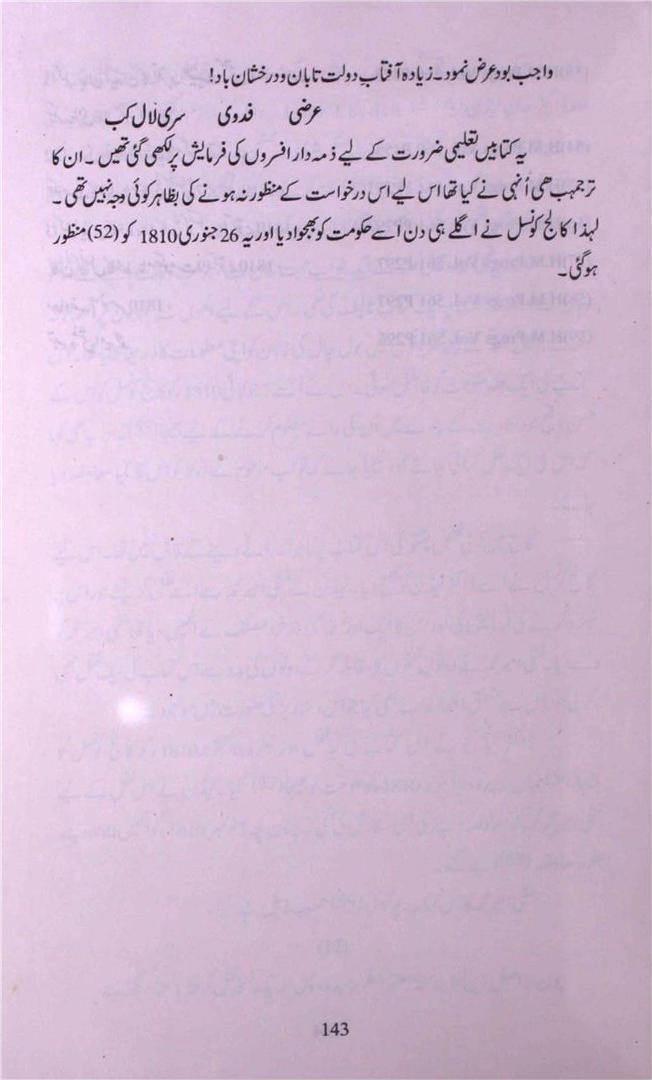 واجب بود عرض نمود۔ زیادہ آفتاب دولت تابان و درخشان باد!
عرضی فدوی سری لال کب
یہ کتابیں تعلیمی ضرورت کے لیے ذمہ دار افسروں کی فرمایش پر لکھی گئی تھیں۔ ان کا
ترجمہب ھی اُنہی نے کیا تھا اس لیے اس درخواست کے منظور نہ ہونے کی بظاہر کوئی وجہ نہیں تھی۔
لہذا کالج کونسل نے اگلے ہی دن اسے حکومت کو بھجوادیا اور یہ 26 جنوری 1810 کو (52) منظور
ہوگئی۔
143